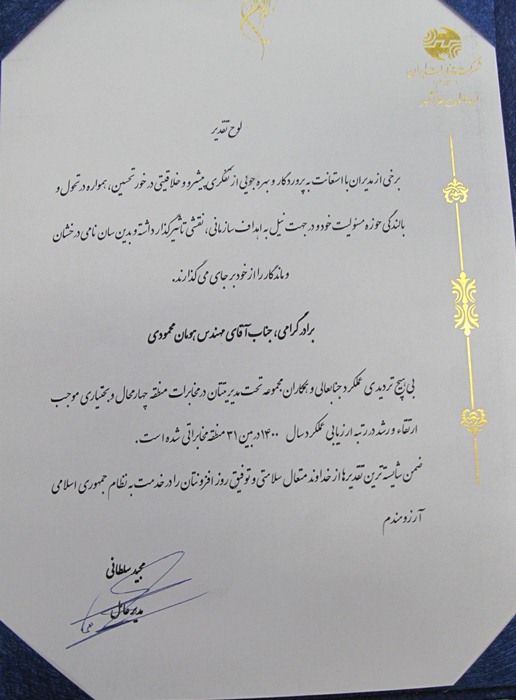 شرکت مخابرات ایران
لوح تقدیر
برخی از مدیران با استعانت به پروردگار و بهره جویی از تفکری پیشرو و خلاقیتی در خور تحسین، همواره در تحول و
بالندگی حوزه مسئولیت خود و در جهت نیل به اهداف سازمانی، نقشی تاثیرگذار داشته و بدین سان نامی درخشان
و ماندگار را از خود بر جای می گذارند.
برادر گرامی، جناب آقای مهندس هومان محمودی
بی هیچ تردیدی عملکرد جنابعالی و همکاران مجموعه تحت مدیریتتان در مخابرات منطقه چهارمحال و بختیاری موجب
ارتقاء و رشد در رتبه ارزیابی عملکرد سال ۱۴۰۰ در بین ۳۱ منطقه مخابراتی شده است.
ضمن شایسته ترین تقدیرها از خداوند متعال سلامتی و توفیق روز افزونتان را در خدمت به نظام جمهوری اسلامی
آرزومندم
مجید سلطانی
مدیرعامل